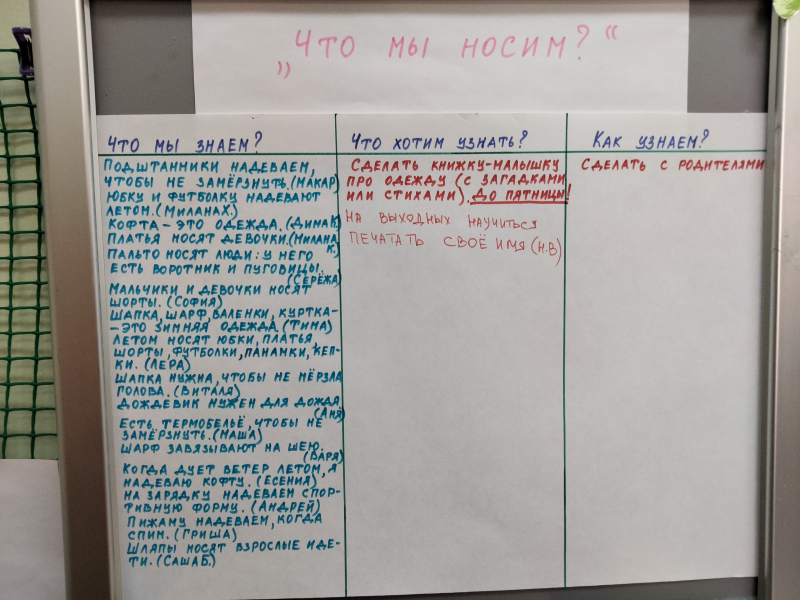 „Что мы носим?“
Что мы знаем?
Подштанники надеваем,
чтобы не замёрзнуть.(Макар)
Юбку и футболку надевают
летом.(Милана Х.)
Кофта – это одежда.(Дима К.)
Платья носят девочки.(Милана К.)
Пальто носят люди: у него
есть воротник и пуговицы.
(Серёжа)
Мальчики и девочки носят
шорты. (София)
Шапка, шарф, валенки, куртка-
–это зимняя одежда.(Тима)
Летом носят юбки, платья,
шорты, футболки, панамки, кеп-
ки. (Лера)
Шапка нужна, чтобы не мёрзла
голова. (Виталя)
Дождевик нужен для дождя.
(Аня)
Есть термобельё, чтобы не
замёрзнуть.(Маша)
Шарф завязывают на шею.
(Варя)
Когда дует ветер летом, я
надеваю кофту. (Есения)
На зарядку надеваем спор-
тивную форму. (Андрей)
Пижаму надеваем, когда
спим. (Гриша)
Шляпы носят взрослые и де-
ти. (Саша Б.)
Что хотим узнать?
Сделать книжку-малышку
про одежду (с загадками
или стихами). До пятницы!
На выходных научиться
печатать своё имя (Н.В)
Как узнаем?
Сделать с родителями